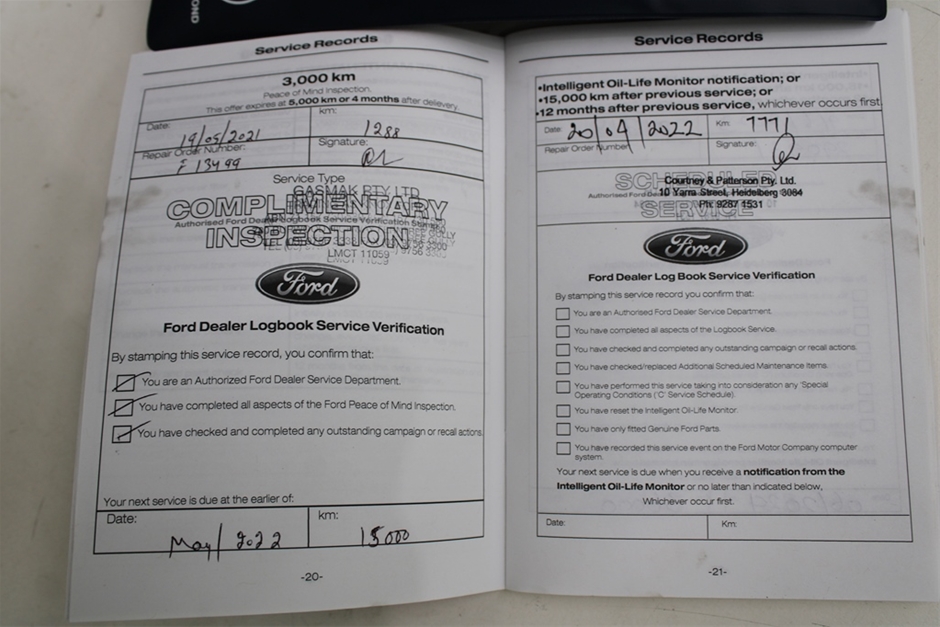 OND
Service Records
3,000 km
Peace of Mind Inspection.
This offer expires at 5,000 km or 4 months after delivery.
Date: 19/05/2021
km: 1288
Repair Order Number: F 13499
Signature:
Service Type
GASMAK PTY LTD
COMPLIMENTARY
Authorised Ford Dealer Logbook Service Verification Stamp
INSPECTION
LMCT 11059
Ford
Ford Dealer Logbook Service Verification
By stamping this service record, you confirm that:
You are an Authorized Ford Dealer Service Department.
You have completed all aspects of the Ford Peace of Mind Inspection.
You have checked and completed any outstanding campaign or recall actions.
Your next service is due at the earlier of:
Date: May/2022
km: 15000
-20-
Service Records
•Intelligent Oil-Life Monitor notification; or
•15,000 km after previous service; or
•12 months after previous service, whichever occurs first
Date: 20/04/2022
Km: 7771
Repair Order Number:
Signature:
SCHEDULED
Courtney & Patterson Pty. Ltd.
Authorised Ford
10 Yarra Street, Heidelberg 3084
SERVICE
Ph: 9287 1531
Ford
Ford Dealer Log Book Service Verification
By stamping this service record you confirm that:
You are an Authorised Ford Dealer Service Department.
You have completed all aspects of the Logbook Service.
You have checked and completed any outstanding campaign or recall actions.
You have checked/replaced Additional Scheduled Maintenance Items.
You have performed this service taking into consideration any 'Special
Operating Conditions ('C' Service Schedule).
You have reset the Intelligent Oil-Life Monitor.
You have only fitted Genuine Ford Parts.
You have recorded this service event on the Ford Motor Company computer
system.
Your next service is due when you receive a notification from the
Intelligent Oil-Life Monitor or no later than indicated below,
Whichever occur first.
Date:
Km:
-21-